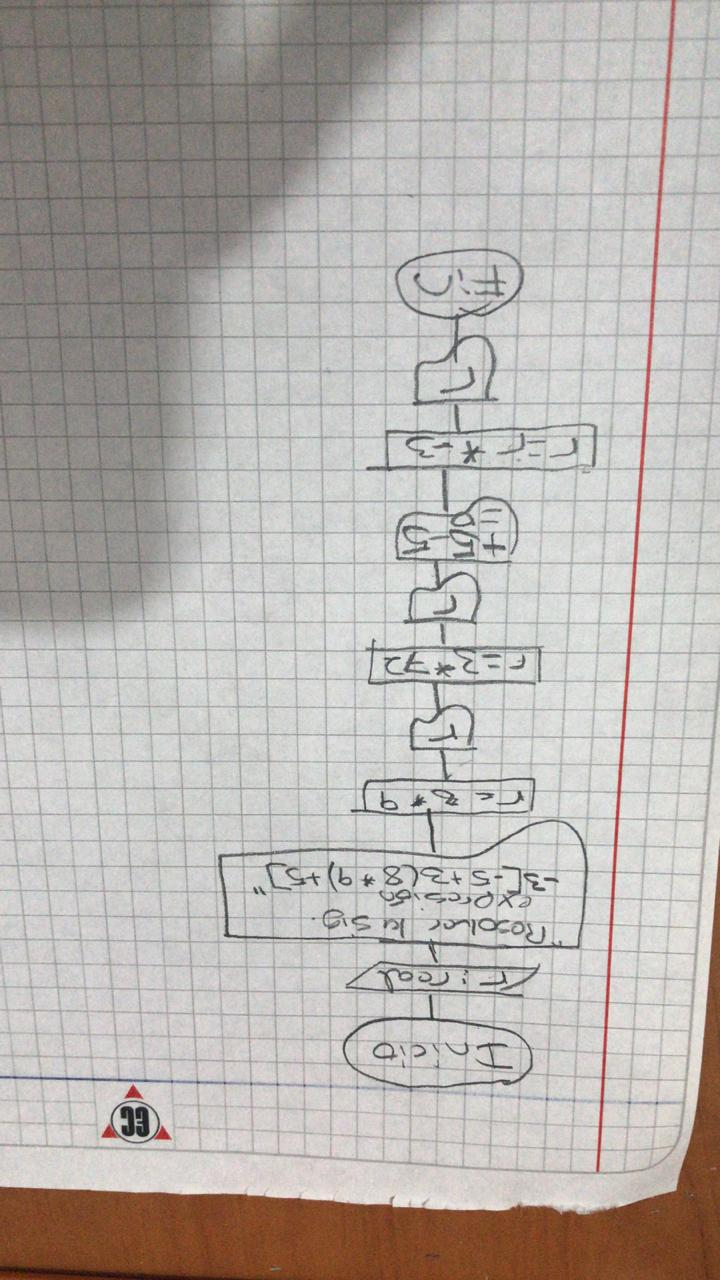 Inicio
r: real
"Resolver la sig.
expresión
-3[-5+3(8*9)+5]"
r = 8 * 9
r
r = 3 * 72
r
+5-5
=0
r = r * -3
r
Fin